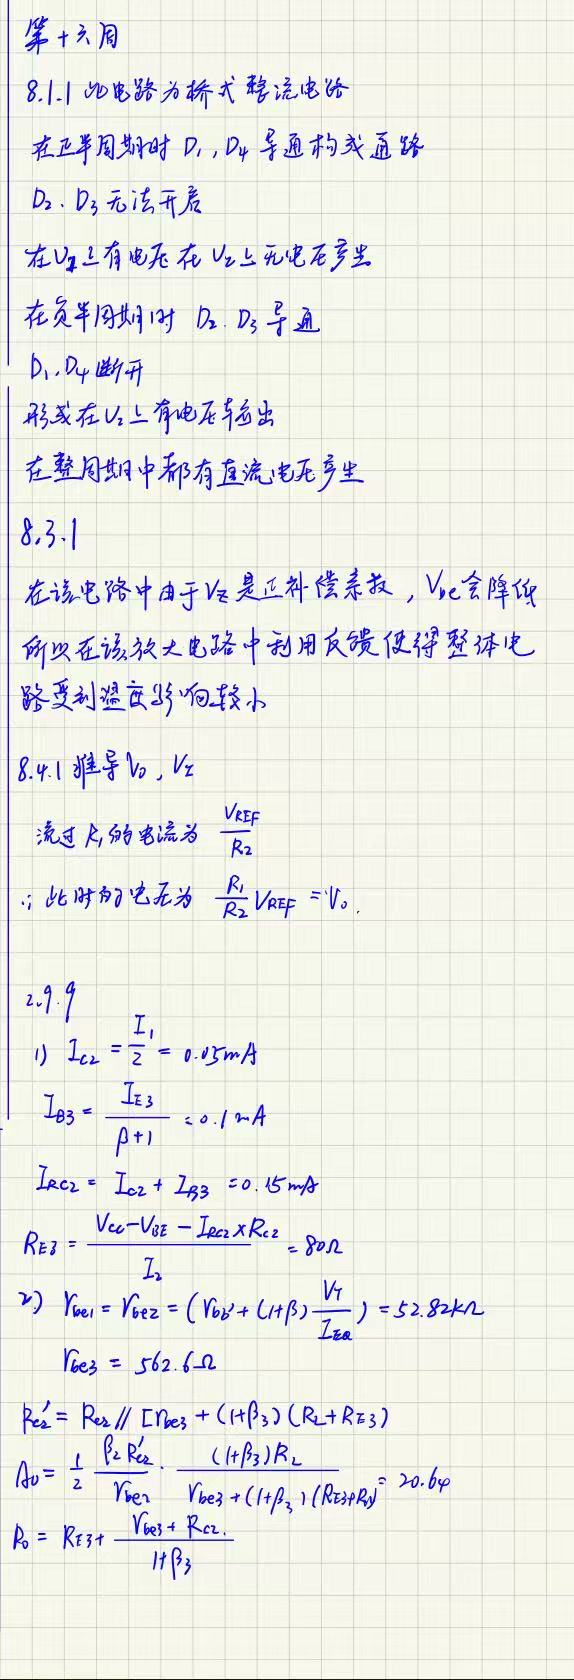 第十六周
8.1.1 此电路为桥式整流电路
在正半周期时 D₁, D₄ 导通构成通路
D₂、D₃ 无法开启
在U₁上有电压在 U₂上无电压产生
在负半周期时 D₂、D₃ 导通
D₁、D₄ 断开
形成在U₂上有电压输出
在整周期中都有直流电压产生
8.3.1
在该电路中由于Vz是正补偿系数，Vbe会降低
所以在该放大电路中利用反馈使得整体电
路受到温度影响较小
8.4.1 推导V₀, Vz
流过R₁的电流为 V_REF/R₂
∴ 此时的电压为 R₁/R₂ V_REF = V₀.
2.9.9
1) I_C2 = I₁/2 = 0.05mA
I_B3 = I_E3/(β+1) = 0.1mA
I_RC2 = I_C2 + I_B3 = 0.15mA
R_E3 = (V_CC - V_BE - I_RC2×R_C2)/I₂ = 80Ω
2) r_be1 = r_be2 = (r_bb' + (1+β) V_T/I_EQ) = 52.82kΩ
r_be3 = 562.6Ω
R_C2' = R_C2 // [r_be3 + (1+β₃)(R_L+R_E3)
A_U = 1/2 β₂R_C2'/r_be2 · (1+β₃)R_L/(r_be3+(1+β₃)(R_E3+R_L)) = 20.64
R₀ = R_E3 + (r_be3 + R_C2)/(1+β₃)